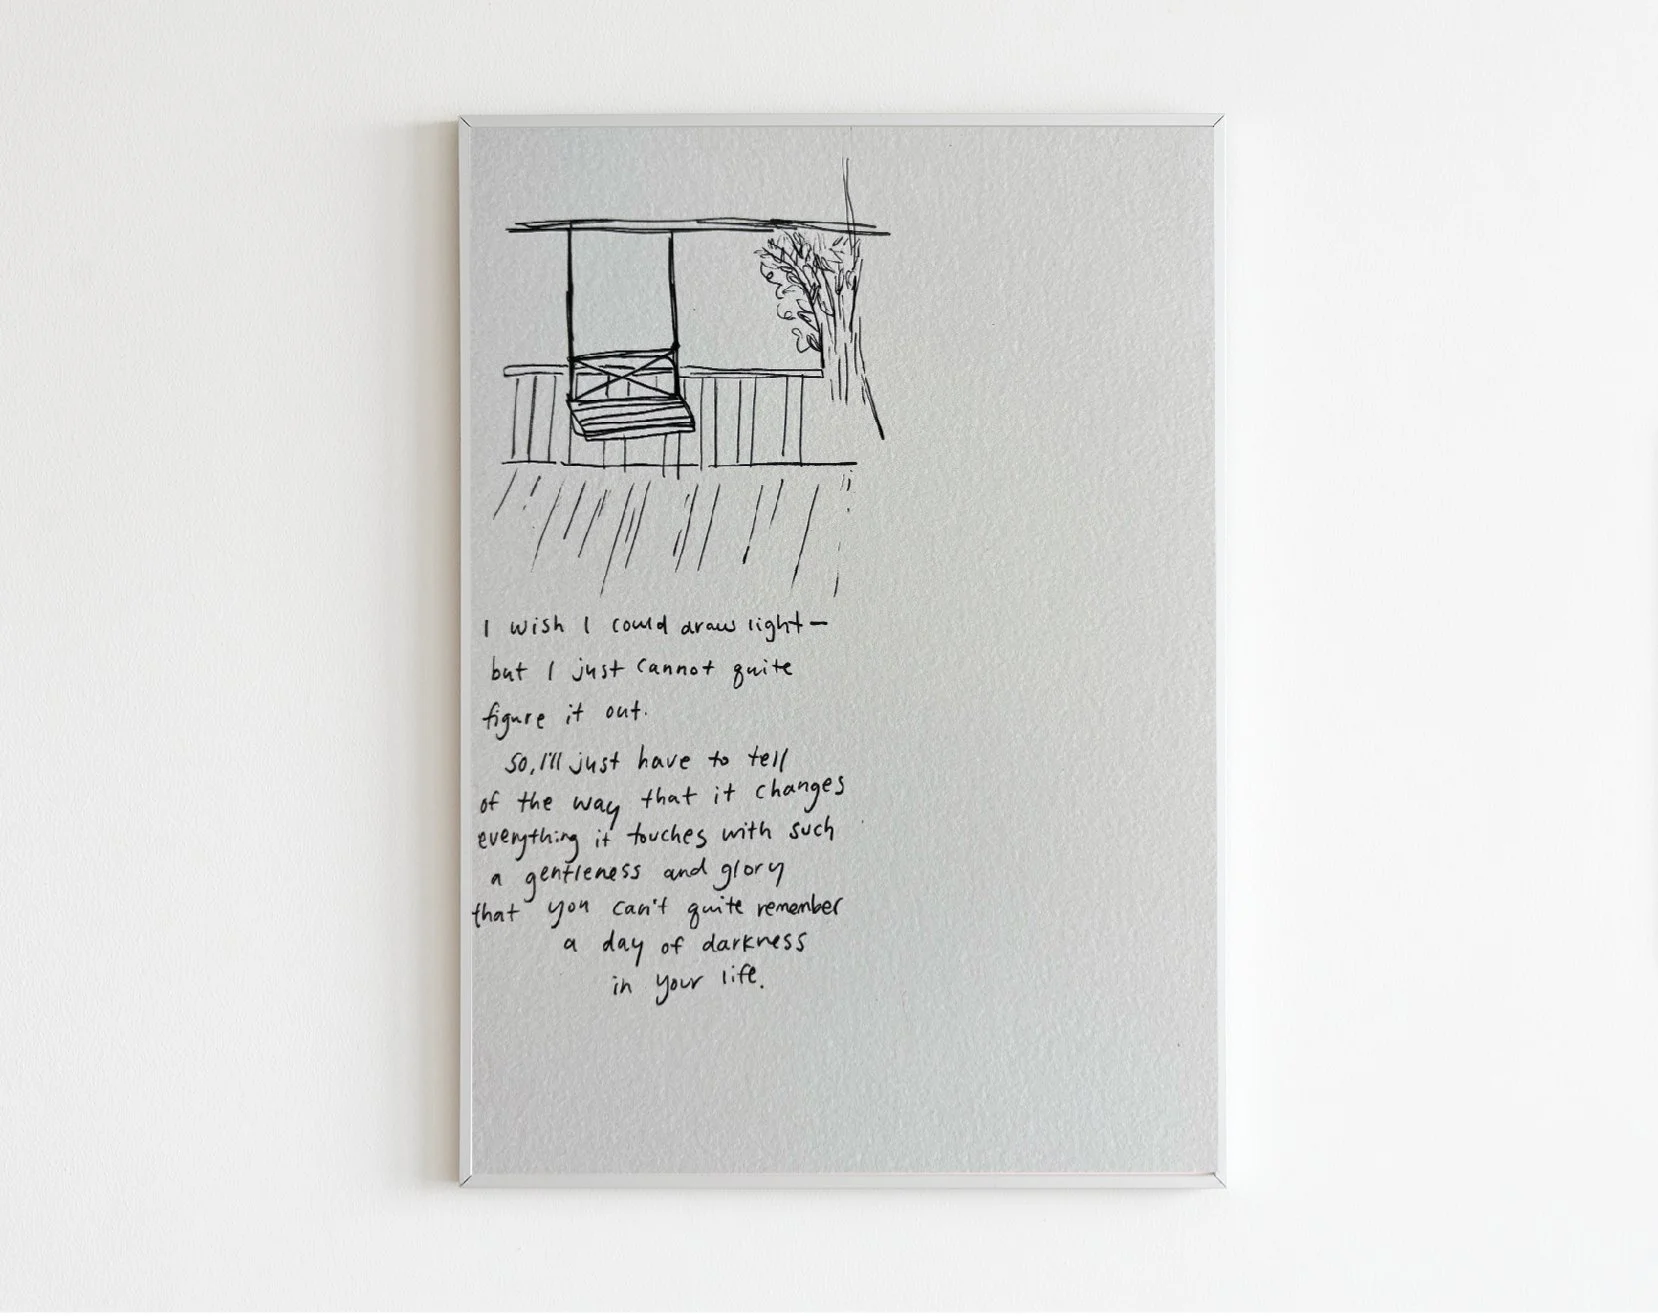 I wish I could draw light—
but I just cannot quite
figure it out.
So, I'll just have to tell
of the way that it changes
everything it touches with such
a gentleness and glory
that you can't quite remember
a day of darkness
in your life.